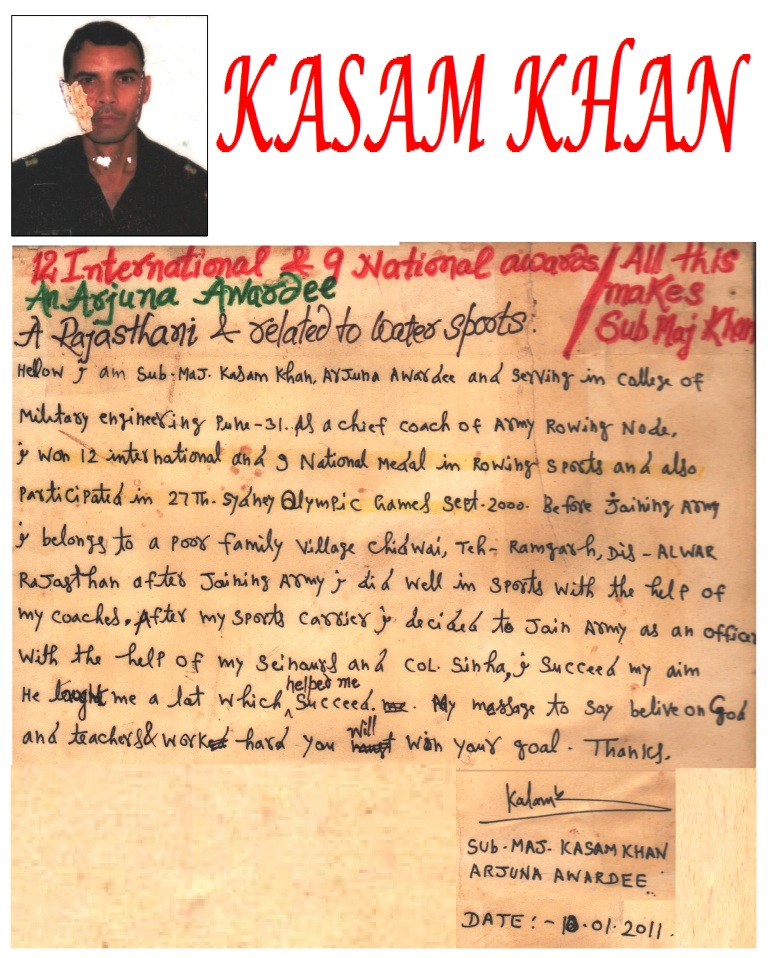 KASAM KHAN
12 International & 9 National awards / All this
An Arjuna Awardee makes
A Rajasthani & related to water sports. Sub Maj Khan
Hellow I am Sub-Maj. Kasam Khan, Arjuna Awardee and serving in College of
Military engineering Pune-31. As a chief coach of Army Rowing Node,
I won 12 international and 9 National Medal in Rowing sports and also
Participated in 27Th. Sydney Olympic Games Sept-2000. Before joining Army
I belongs to a poor family village Chidwai, Teh- Ramgarh, Dis - ALWAR
Rajasthan after Joining Army I did well in sports with the help of
my coaches. After my sports carrier I decided to Join Army as an officer
With the help of my Seinours and Col. Sinha, I Succeed my aim
He taught me a lat which helped me Succeed. My massage to say belive on God
and teachers & work hard you will win your goal. Thanks.
SUB-MAJ- KASAM KHAN
ARJUNA AWARDEE
DATE:- .01.2011.